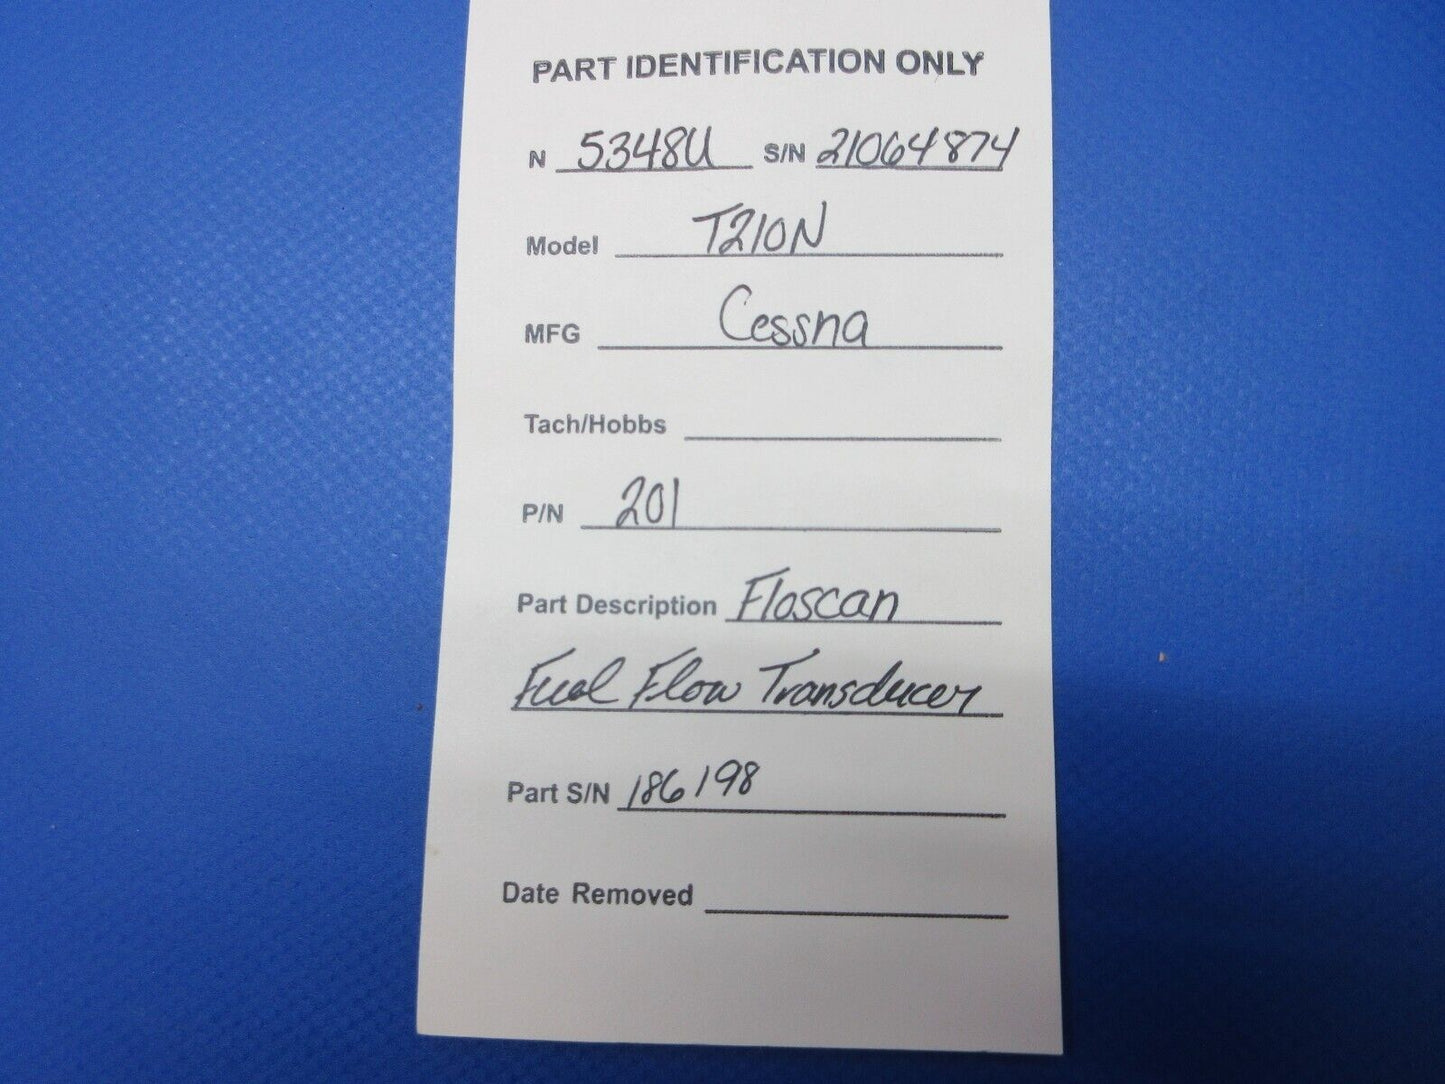 PART IDENTIFICATION ONLY
N 5348U S/N 21064874
Model T210N
MFG Cessna
Tach/Hobbs
P/N 201
Part Description Floscan
Fuel Flow Transducer
Part S/N 186198
Date Removed